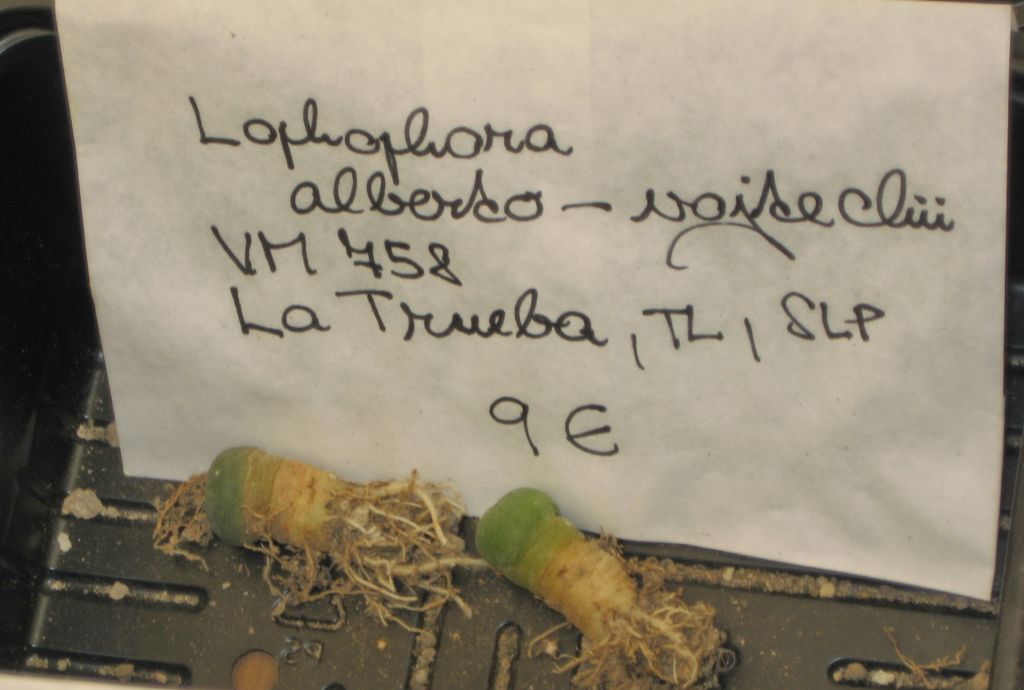 Lophophora
alberto-vojtechii
VM 758
La Trueba, TL, SLP
9 €